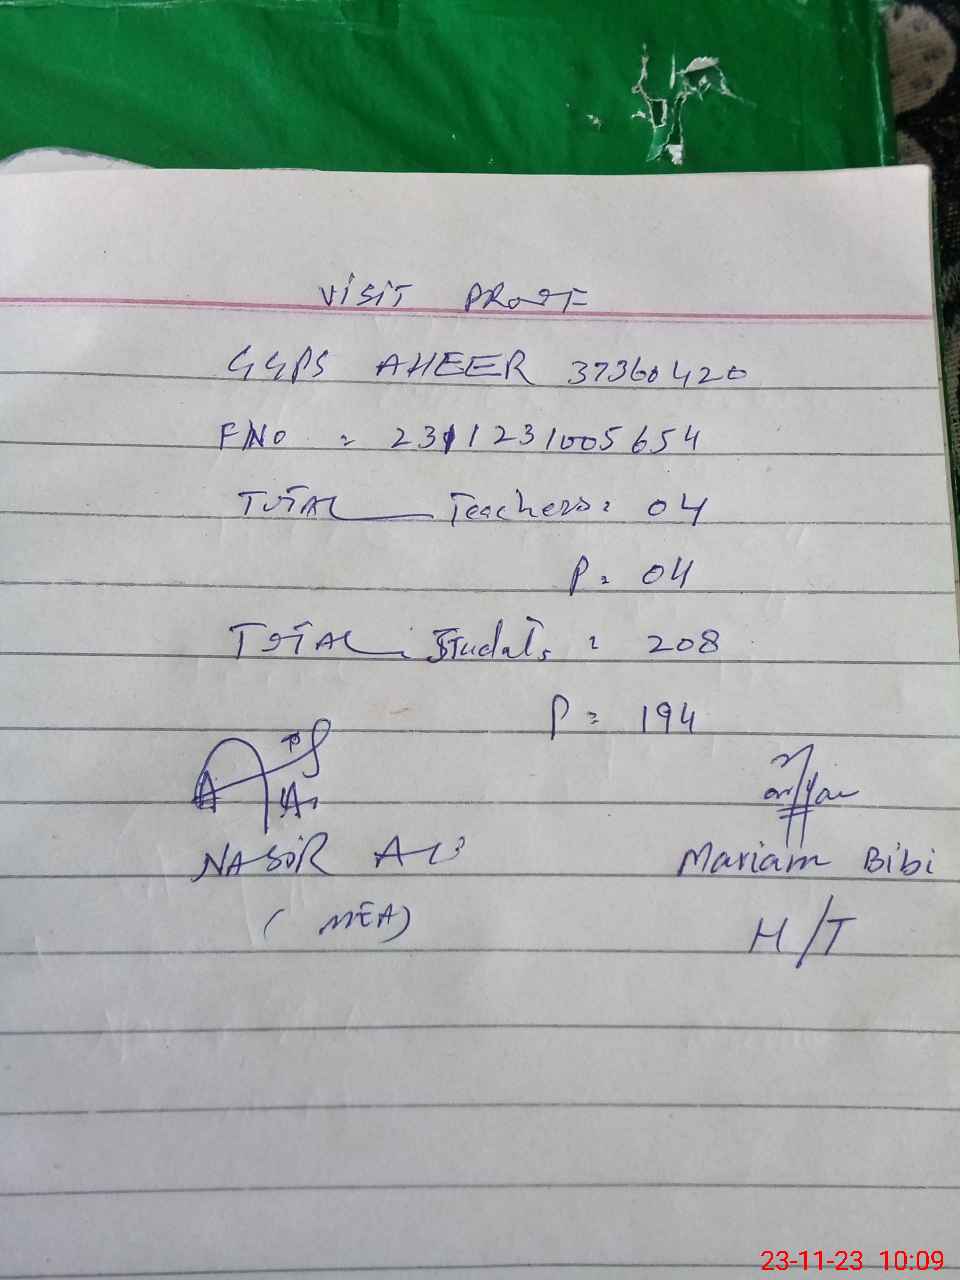 VISIT PROOF
GGPS AHEER 37360420
FNO = 2311231005654
TOTAL Teachers = 04
P = 04
TOTAL Studats = 208
P = 194
NASIR ALI
Mariam Bibi
(MEA)
H/T
23-11-23 10:09